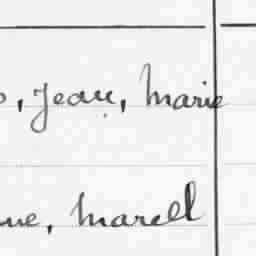 , Jean, Marie
, Marcel